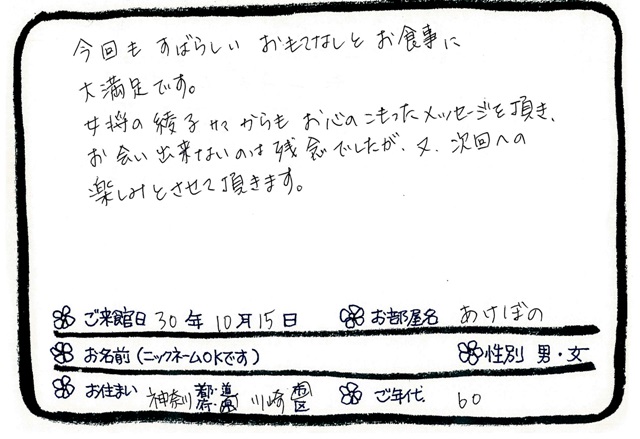 今回も すばらしい おもてなしと お食事に
大満足です。
女将の綾子サマからも お心のこもったメッセージを頂き、
お会い出来ないのは残念でしたが、又、次回への
楽しみとさせて頂きます。
ご来館日 30年10月15日 お部屋名 あけぼの
お名前(ニックネームOKです) 性別 男・女
お住まい 神奈川 都・道・府・県 川崎 市・区 ご年代 60